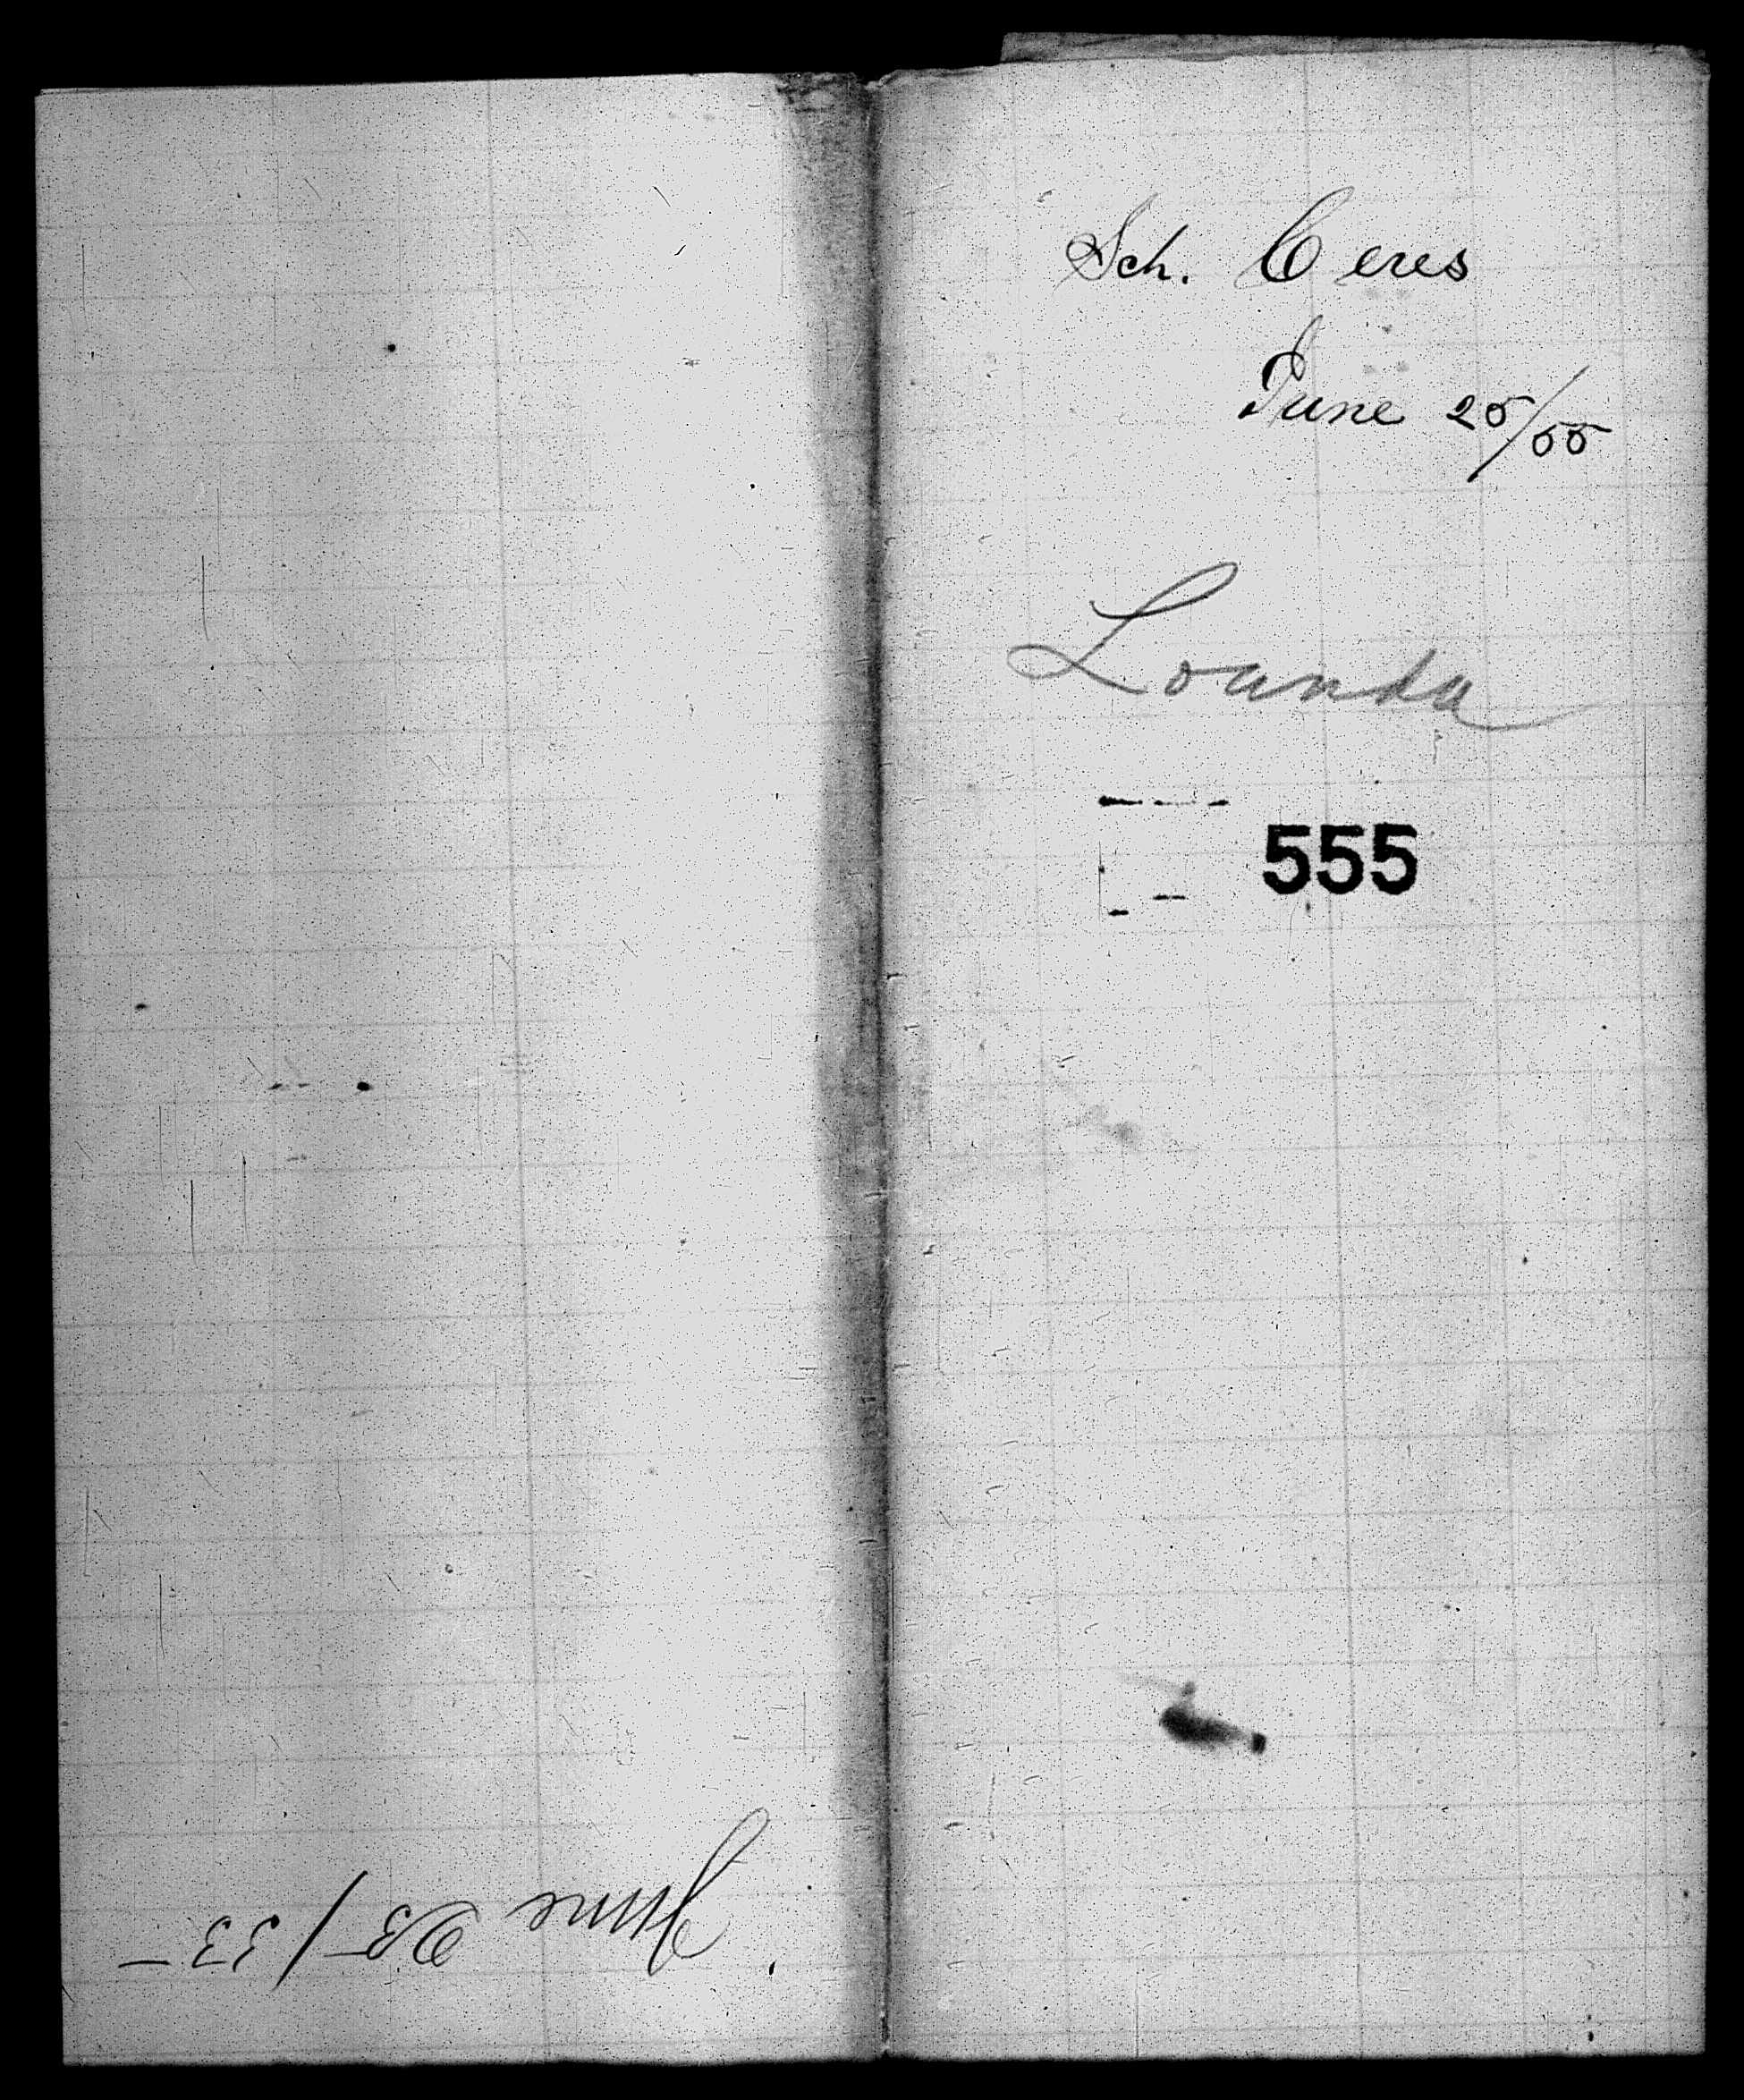 Sch. Ceres
June 25/55
Loanda
555
June 25/55